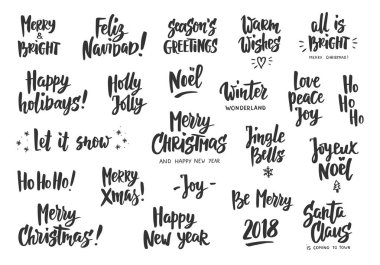 Merry
&
BRiGHT
Feliz
Navidad!
Season's
GREETINGS
Warm
Wishes
all is
BRiGHT
MERRY CHRISTMAS!
Happy
holidays!
Holly
Jolly
Noël
Winter
WONDERLAND
Love
peace
Joy
Ho
Ho
Ho
let it snow
Merry
CHRISTMAS
AND HAPPY NEW YEAR
Jingle
Bells
Joyeux
Noël
Ho Ho Ho!
Merry
Xmas!
-Joy-
Be Merry
2018
Santa
Claus
IS COMING TO TOWN
Merry
Christmas!
Happy
New year